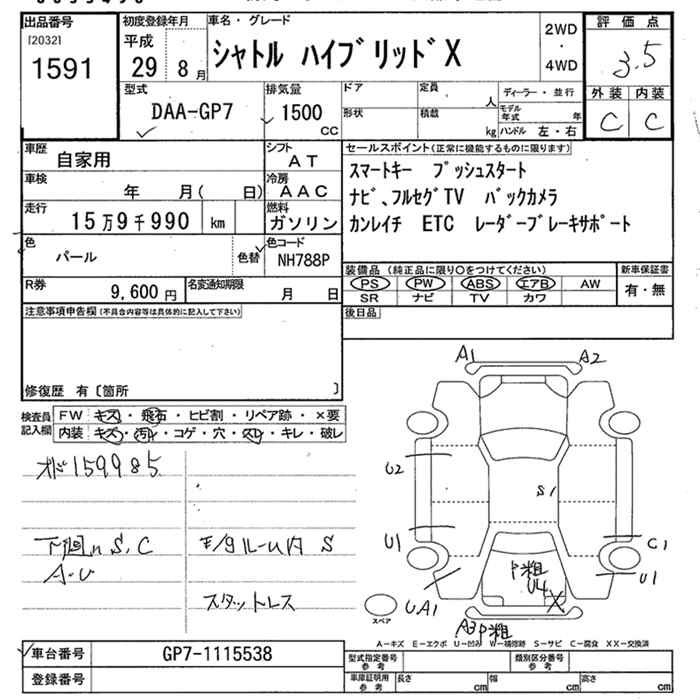 出品番号
[2032]
1591
初度登録年月
平成
29 8月
車名・グレード
シャトル ハイブリッド X
2WD
・
4WD
評価点
3.5
外装 内装
C C
型式
DAA-GP7
排気量
1500
cc
ドア
定員
人
形状
積載
kg
ディーラー・並行
モデル年式 年
ハンドル 左・右
車歴
自家用
シフト
AT
車検
年 月( 日)
冷房
AAC
走行
15万9千990 km
燃料
ガソリン
色
パール
色替
色コード
NH788P
R券
9,600円
名変通知期限
月 日
セールスポイント(正常に機能するものに限ります)
スマートキー プッシュスタート
ナビ、フルセグTV バックカメラ
カンレイチ ETC レーダーブレーキサポート
装備品(純正品に限り○をつけてください)
PS PW ABS エアB AW
SR ナビ TV カワ
新車保証書
有・無
後日品
注意事項申告欄(不具合内容等は具体的に記入して下さい)
修復歴 有〔箇所 〕
検査員記入欄
FW キズ・飛石・ヒビ割・リペア跡・×要
内装 キズ・汚れ・コゲ・穴・スレ・キレ・破レ
オド159985
下廻りS,C
A-U
モグルーム内 S
スタットレス
A1
A2
U2
S1
U1
C1
U1
P粗
U4
X
UA1
A3P粗
スペア
A-キズ E-エクボ U-凹み W-補修跡 S-サビ C-腐食 XX-交換済
車台番号
GP7-1115538
登録番号
型式指定番号 参考
類別区分番号 参考
車庫証明用 参考
長さ cm
幅 cm
高さ cm